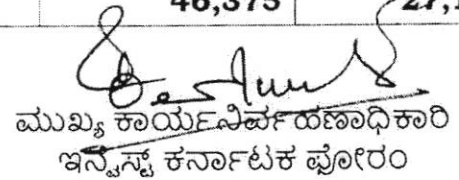 46,375
ಮುಖ್ಯ ಕಾರ್ಯನಿರ್ವಹಣಾಧಿಕಾರಿ
ಇನ್ವೆಸ್ಟ್ ಕರ್ನಾಟಕ ಫೋರಂ